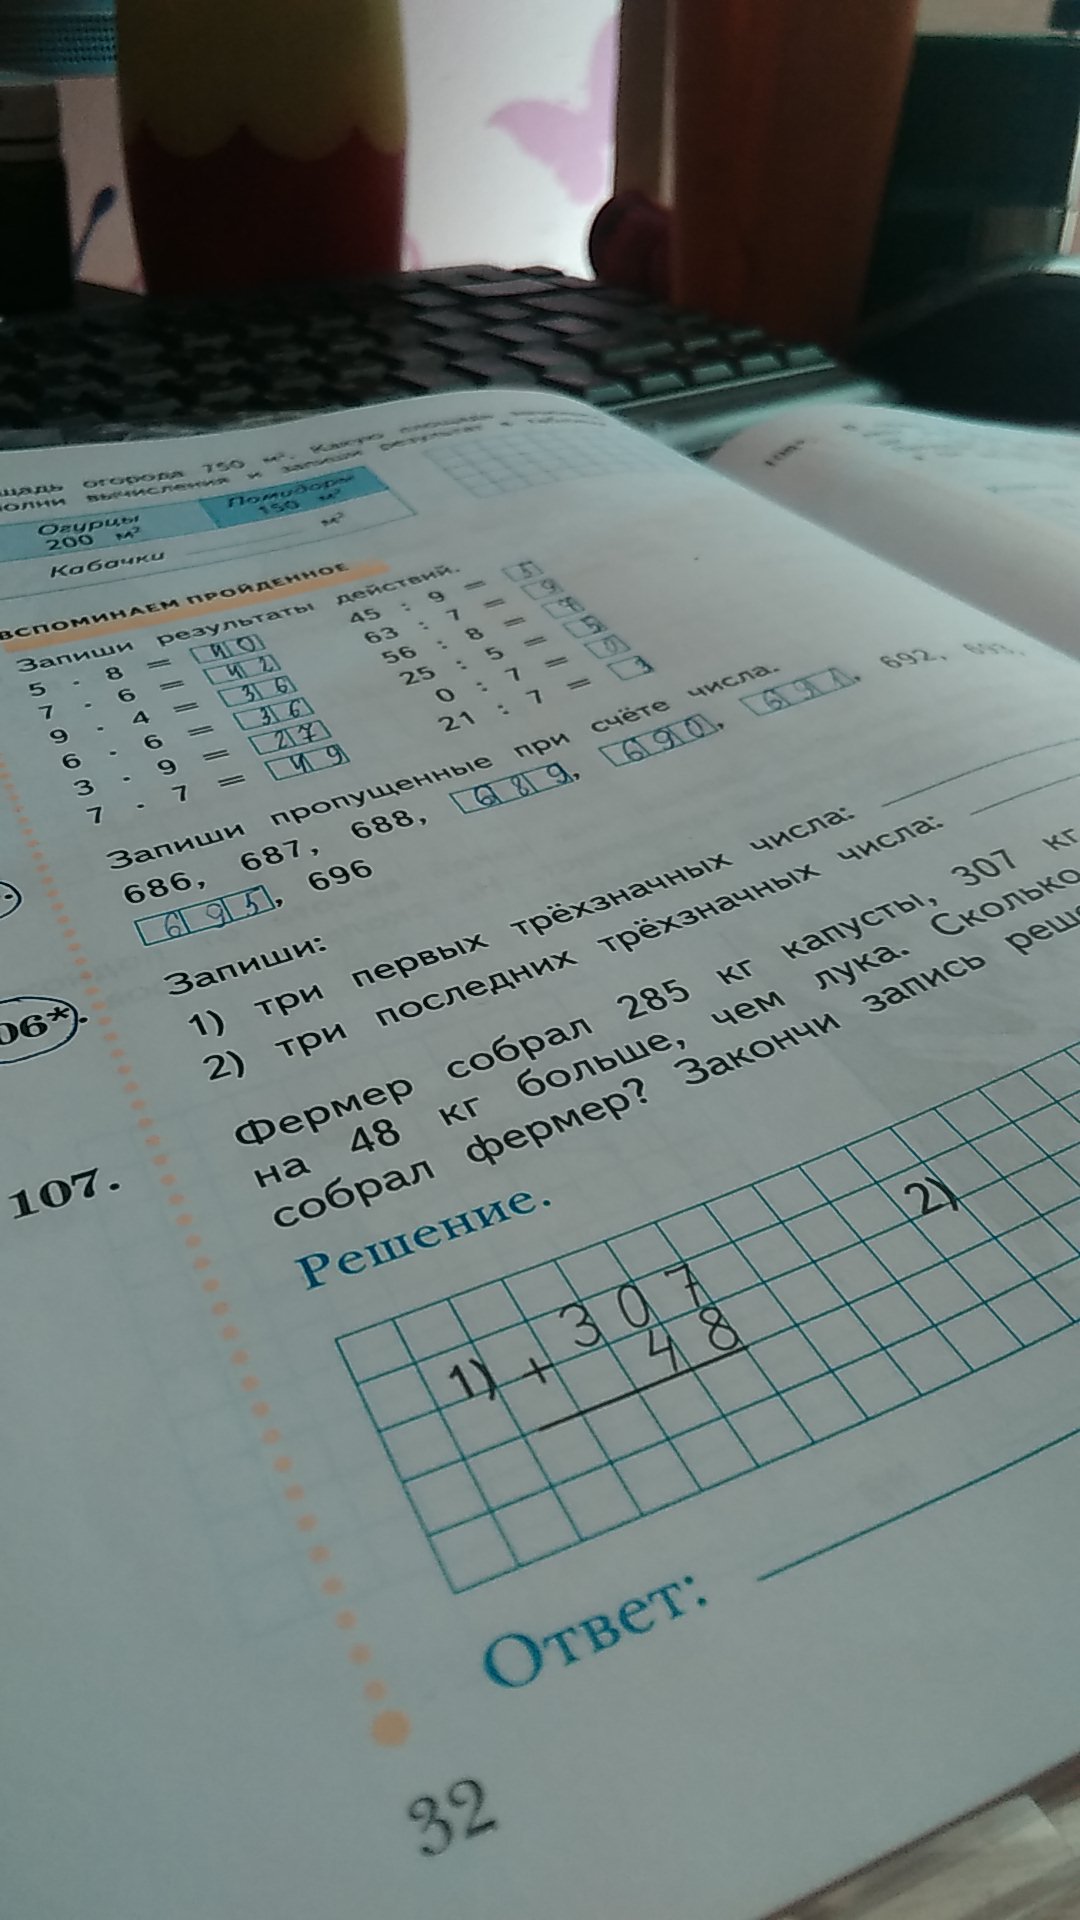 огорода 750 м². Какую площадь
вычисления и запиши результат в
Огурцы Помидоры
200 м² 150 м²
Кабачки м²
ВСПОМИНАЕМ ПРОЙДЕННОЕ
Запиши результаты действий.
5 · 8 = 40 45 : 9 = 5
7 · 6 = 42 63 : 7 = 9
9 · 4 = 36 56 : 8 =
6 · 6 = 36 25 : 5 = 5
3 · 9 = 27 0 : 7 = 0
7 · 7 = 49 21 : 7 = 3
Запиши пропущенные при счёте числа.
686, 687, 688, 689, 690, 691, 692, 693,
695, 696
06*.
Запиши:
1) три первых трёхзначных числа:
2) три последних трёхзначных числа:
107. Фермер собрал 285 кг капусты, 307 кг
на 48 кг больше, чем лука. Сколько
собрал фермер? Закончи запись
Решение.
1) + 307 2)
48
Ответ:
32